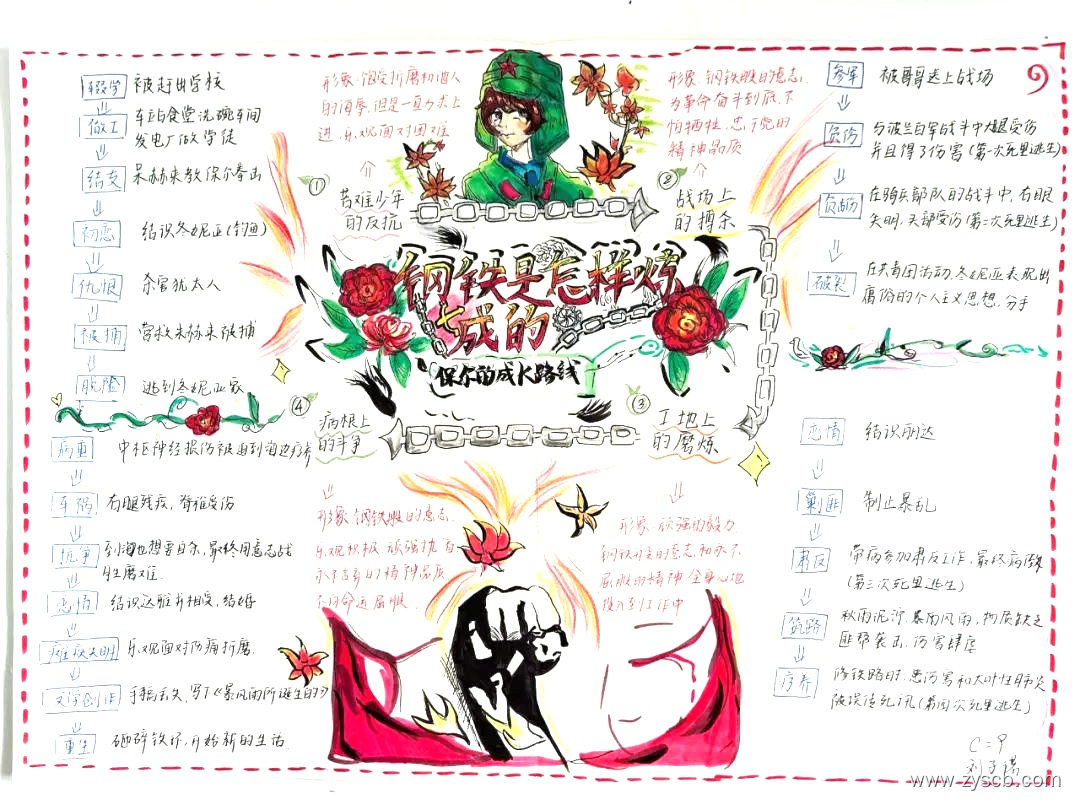 钢铁是怎样炼
成的
保尔的成长路线
①
苦难少年
的反抗
形象:饱受折磨和他人
的侮辱,但是一直力求上
进,乐观面对困难
辍学
被赶出学校
做工
车站食堂洗碗车间
发电厂做学徒
结支
呆赫来教保尔拳击
初恋
结识冬妮亚(钓鱼)
仇恨
杀害犹太人
被捕
营救朱赫来被捕
脱险
逃到冬妮亚家
②
战场上
的搏杀
形象:钢铁般的意志,
为革命奋斗到底,不
怕牺牲,忠于党的
精神品质
参军
被哥哥送上战场
负伤
与波兰白军战斗中大腿受伤
并且得了伤害(第一次死里逃生)
负重伤
在骑兵部队的战斗中,右眼
失明,头部受伤(第二次死里逃生)
破裂
在共青团活动,冬妮亚表现出
腐俗的个人主义思想,分手
③
工地上
的磨炼
形象:顽强的毅力
钢铁般的意志,和永不
屈服的精神 全身心地
投入到工作中
恋情
结识丽达
剿匪
制止暴乱
肃反
带病参加肃反工作,最终病倒
(第三次死里逃生)
筑路
秋雨泥泞,暴雨风雨,物质缺乏
匪帮袭击,伤害肆虐
疗养
修铁路时,患伤害和大叶性肺炎
被误传死讯(第四次死里逃生)
④
病根上
的斗争
形象:钢铁般的意志,
乐观积极 顽强执着
永不言弃的精神品质
不向命运屈服
病重
中枢神经损伤被迫到海边疗养
车祸
右腿残疾,脊椎受伤
抗争
到海边想要自杀,最终用意志战
胜磨难
恋情
结识达雅并相爱,结婚
瘫痪失明
乐观面对伤痛折磨
文学创作
手稿丢失,写了《暴风雨所诞生的》
重生
砸碎铁环,开始新的生活
www.zyscb.com